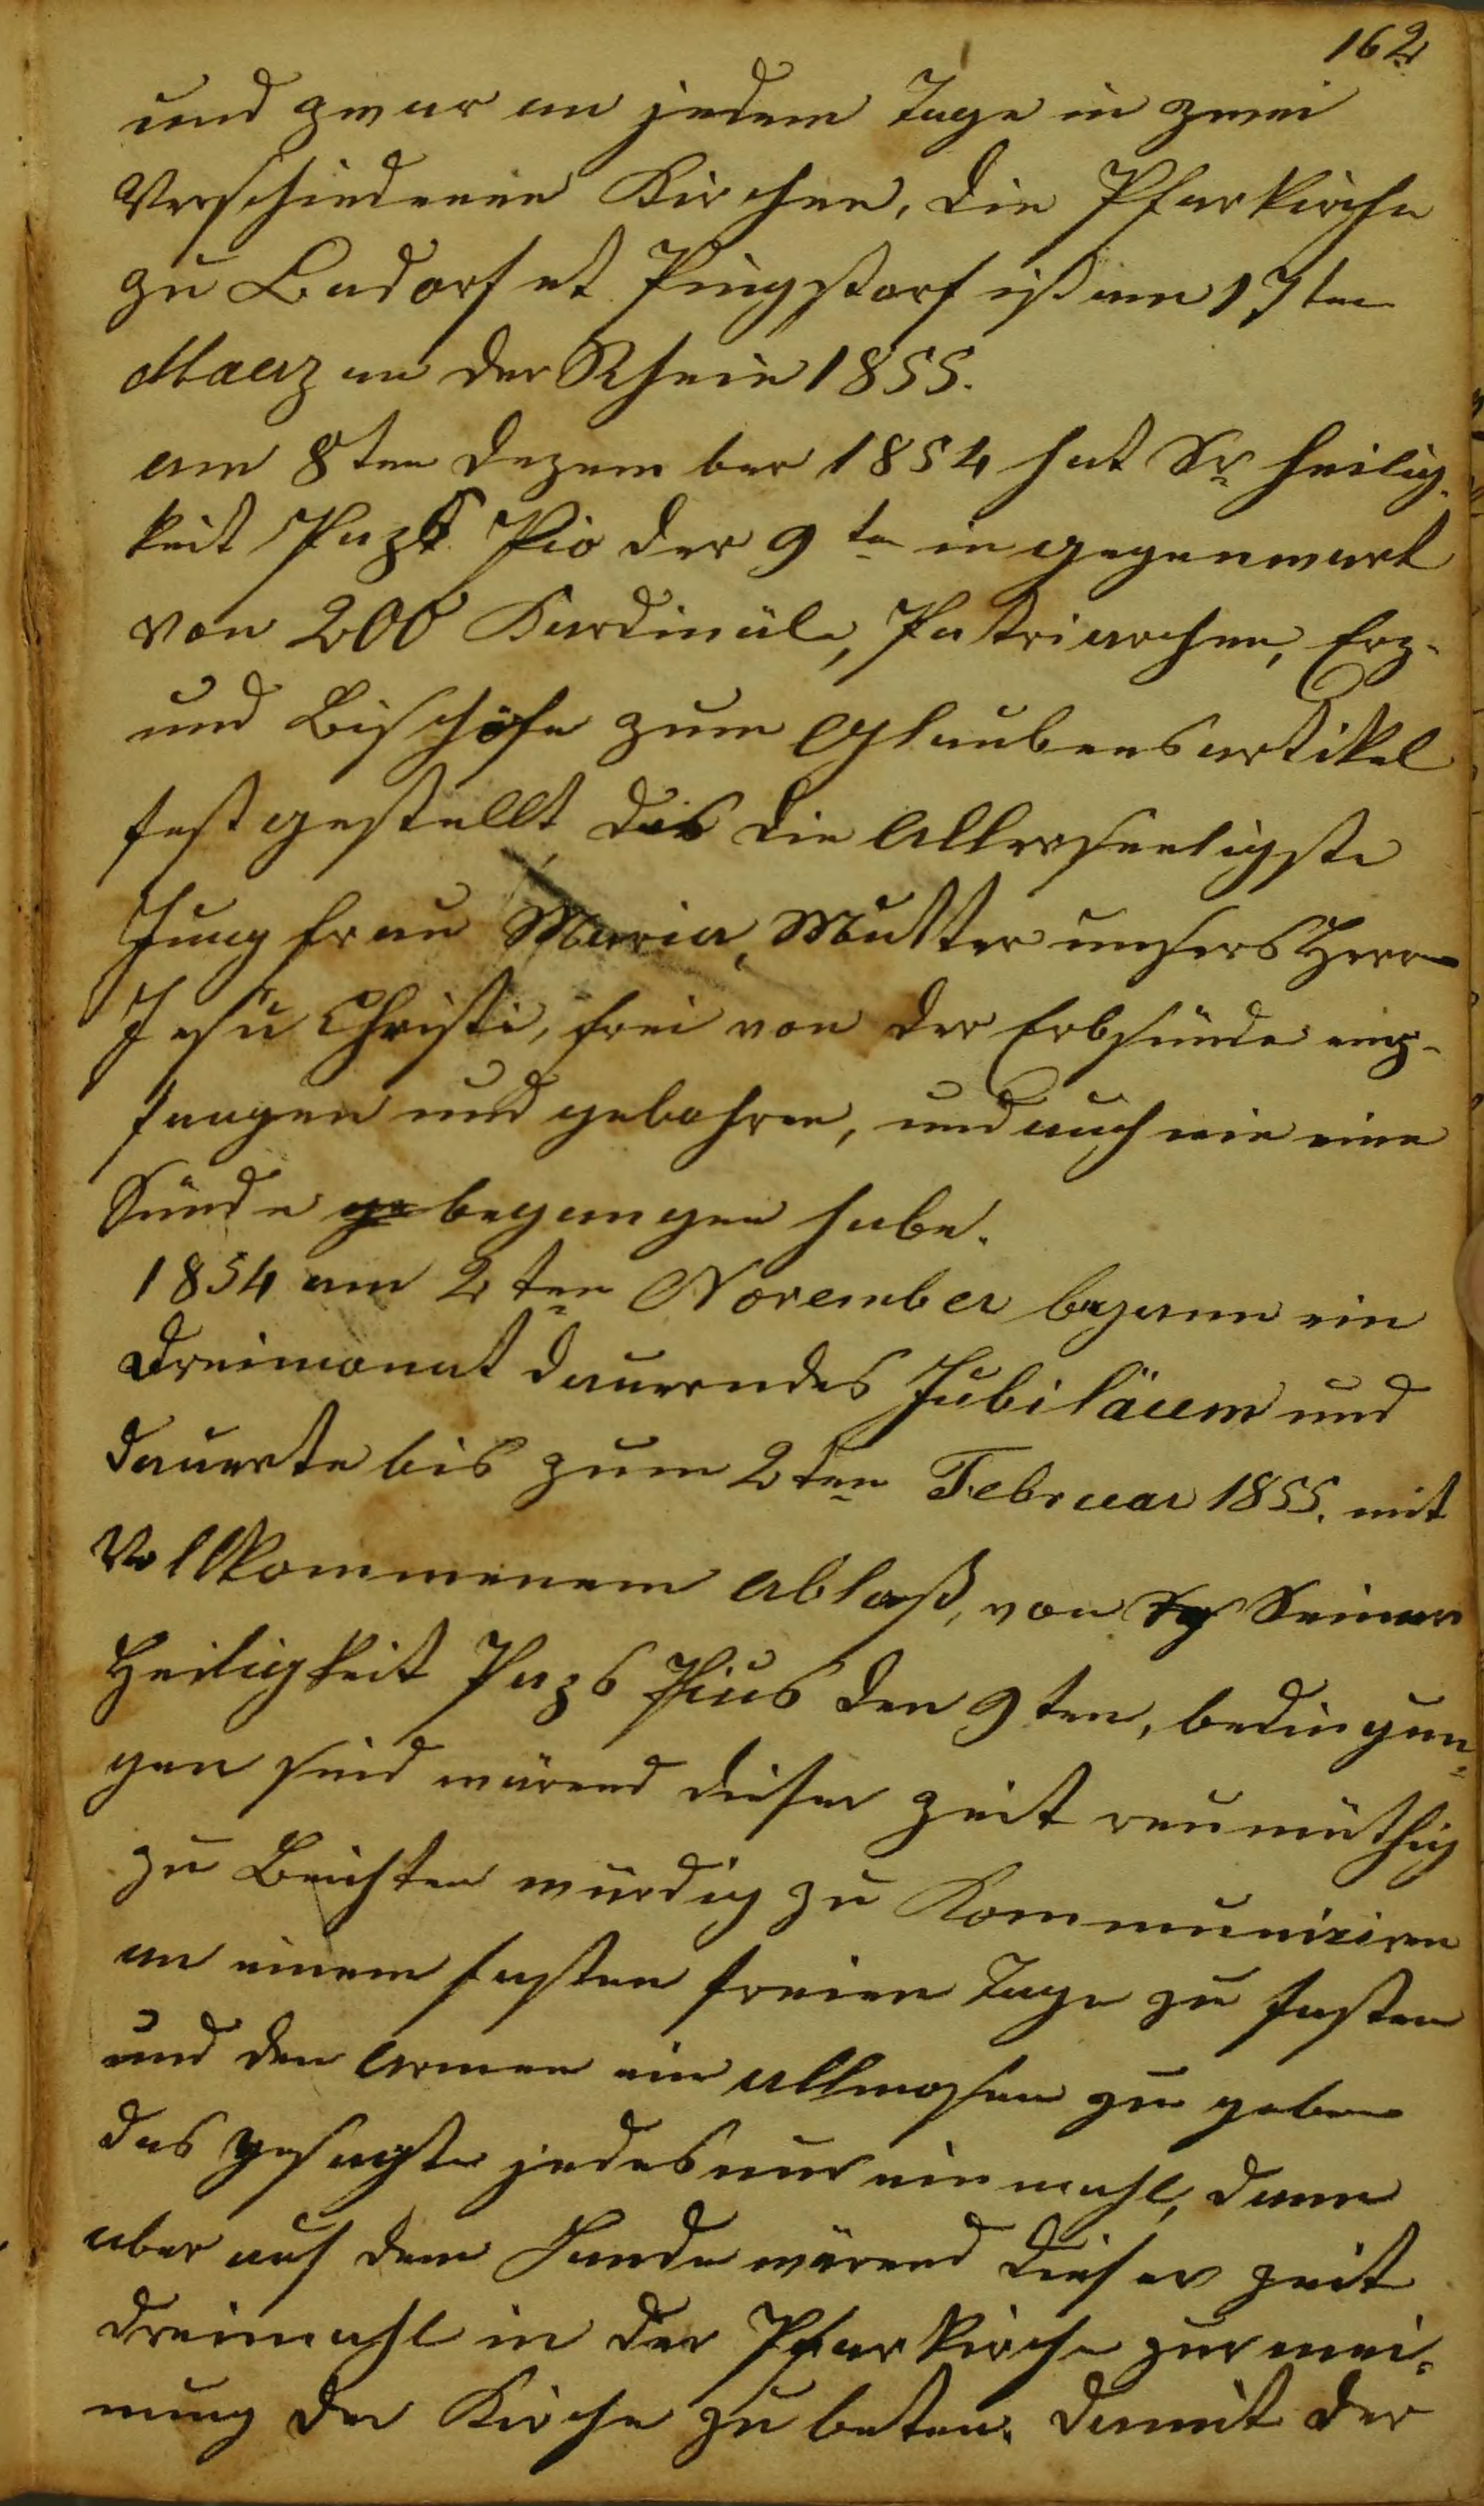 162
und zwar an jedem Tage in zwei
Verschiedenen Kirchen, die Pfarkirche
zu Badorf et Pingsdorf ist am 17ten
Maerz an der Rheie 1855.
am 8ten Dezember 1854 hat Sr heilig-
keit Pazst Pio der 9te in gegenwart
von 200 Kardinäle, Patriarchen, Erz-
und Bischöfe zum Glaubensartikel
festgestellt, das die Allerseeligste
Jungfrau Maria, Mutter unsers Herrn
Jesu Christi, frei von der Erbsünde emp-
fangen und gebohren, und auch nie eine
Sünde ge begangen habe.
1854 am 2ten November begann ein
Dreimonat dauerndes Jubiläum und
dauerte bis zum 2ten Februar 1855. mit
Vollkommenem Ablaß, von Seiner
Heiligkeit Pazs Pius den 9ten, bedingun-
gen sind wärend dieser zeit reumüthig
zu Beichten würdig zu Kommuniziren
an einem fasten freien Tage zu fasten
und den Armen ein Allmosen zu geben
das gesagte jedes nur ein mahl, dann
aber auf dem Lande wärend dieser zeit
dreimahl in der Pfarkirche zur mei-
nung der Kirche zu beten. damit der